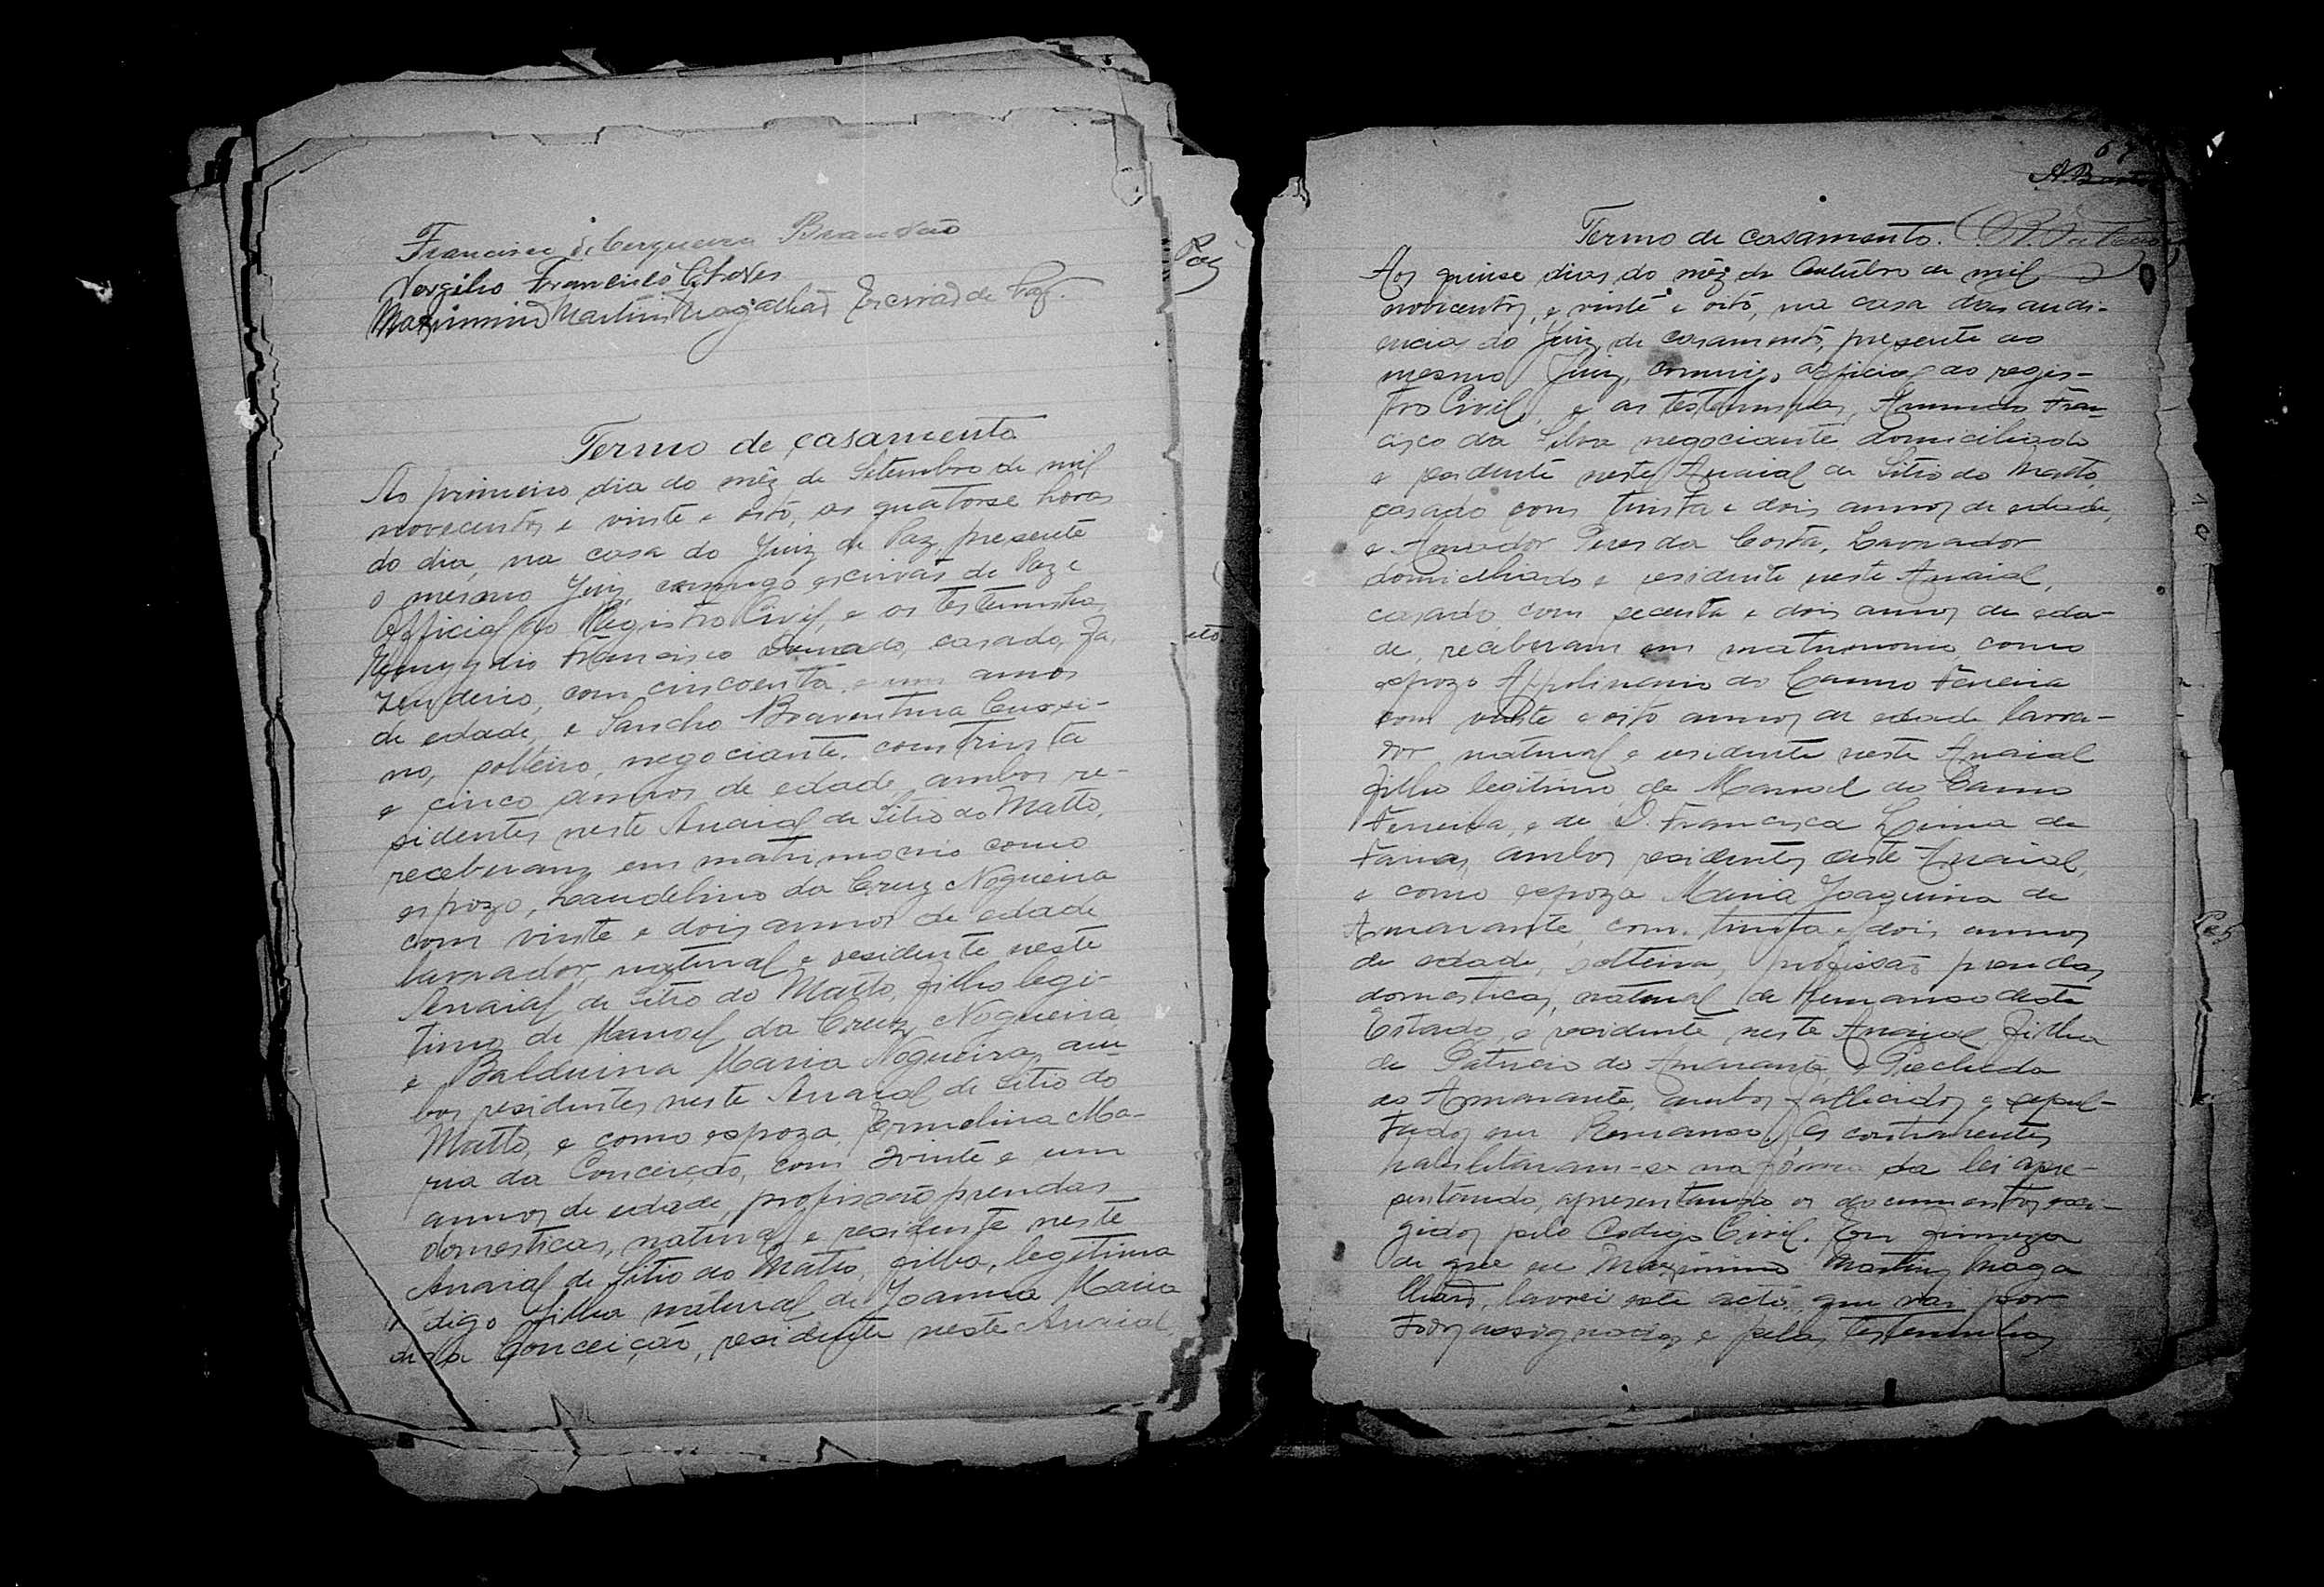 Francisco de Cerqueira Brandão
Vergilio Francisco Chaves
Maximino Martins Magalhães Escrivão de Paz.
Termo de casamento
Ao primeiro dia do mêz de Setembro de mil
novecentos e vinte e oito, as quatorse horas
do dia, na casa do Juiz de Paz, presente
o mesmo Juiz, commigo escrivão de Paz e
Official do Registro Civil, e os testemunhas
Francisco Dourado, casado, fa-
zendeiro, com cincoenta e um annos
de edade, e Sancho Boaventura
no, solteiro, negociante, com trinta
e cinco annos de edade, ambos re-
sidentes neste Arraial de Sitio do Matto,
receberam em matrimonio como
espozo, Laudelino da Cruz Nogueira
com vinte e dois annos de edade
lavrador, natural e residente neste
Arraial de Sitio do Matto, filho legi-
timo de Manoel da Cruz Nogueira
e Balduina Maria Nogueira, am-
bos residentes neste Arraial de Sitio do
Matto, e como espoza, Ermelina Ma-
ria da Conceição, com vinte e um
annos de edade, profissão prendas
domesticas, natural e residente neste
Arraial de Sitio do Matto, filha, legitima
digo filha natural de Joanna Maria
da Conceição, residente neste Arraial,
Paz
Termo de casamento.
Aos quinse dias do mêz de Outubro de mil
novecentos, e vinte e oito, na casa das audi-
encias do Juiz de casamento, presente ao
mesmo Juiz, commigo official do regis-
tro Civil, e as testemunhas, Fran-
cisco da Silva negociante, domiciliado
e residente neste Arraial de Sitio do Matto,
casado com trinta e dois annos de edade,
e Amador Peres da Costa, Lavrador
domicilhado e residente neste Arraial,
casado, com secenta e dois annos de eda-
de, receberam em matrimonio como
espozo Appolinario do Carmo Ferreira
com vinte e oito annos de edade lavra-
dor natural e residente neste Arraial
filho legitimo de Manoel do Carmo
Ferreira, e de D. Francisca Lima de
Farias, ambos residentes deste Arraial,
e como espoza Maria Joaquina de
Amarante, com trinta e dois annos
de edade, solteira, profissão prendas
domesticas, natural de Remanso deste
Estado, e residente neste Arraial filha
de Patricio do Amarante, e
do Amarante, ambos fallecidos e sepul-
tados em Remanso, os contraentes
habilitaram-se na fórma da lei apre-
sentando, apresentando os documentos exi-
gidos pelo Codigo Civil. Em firmeza
de que eu Maximino Martins Maga
lhães, lavrei este acto, que vai por
todos assignados e pelas testemunhas